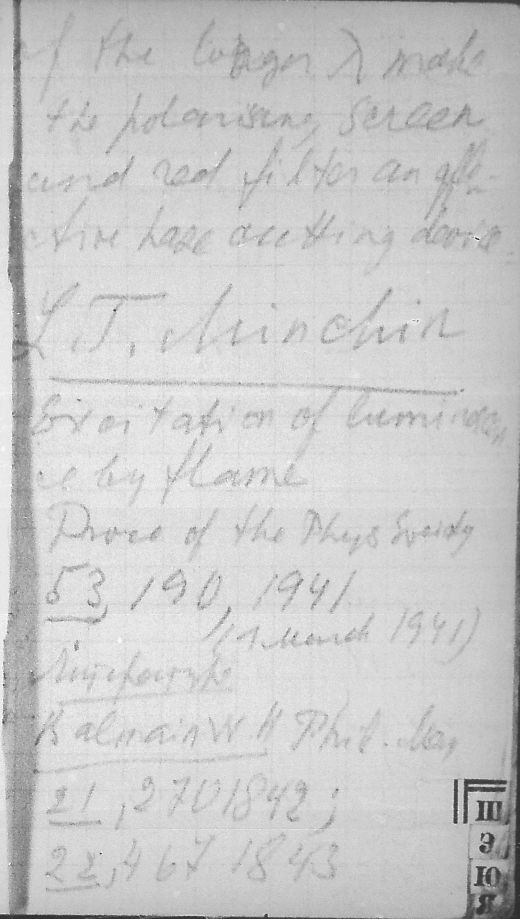 of the longer λ make
the polarising screen
and red filter an effe-
ctive haze cutting device.
L.T. Minchin
Excitation of luminescen
ce by flame
Proce of the Phys Society
53, 190, 1941
(1 March 1941)
Литература
Balmain W H Phil. Mag
21, 270 1842;
22, 467 1843
Ш
Э
Ю
Я